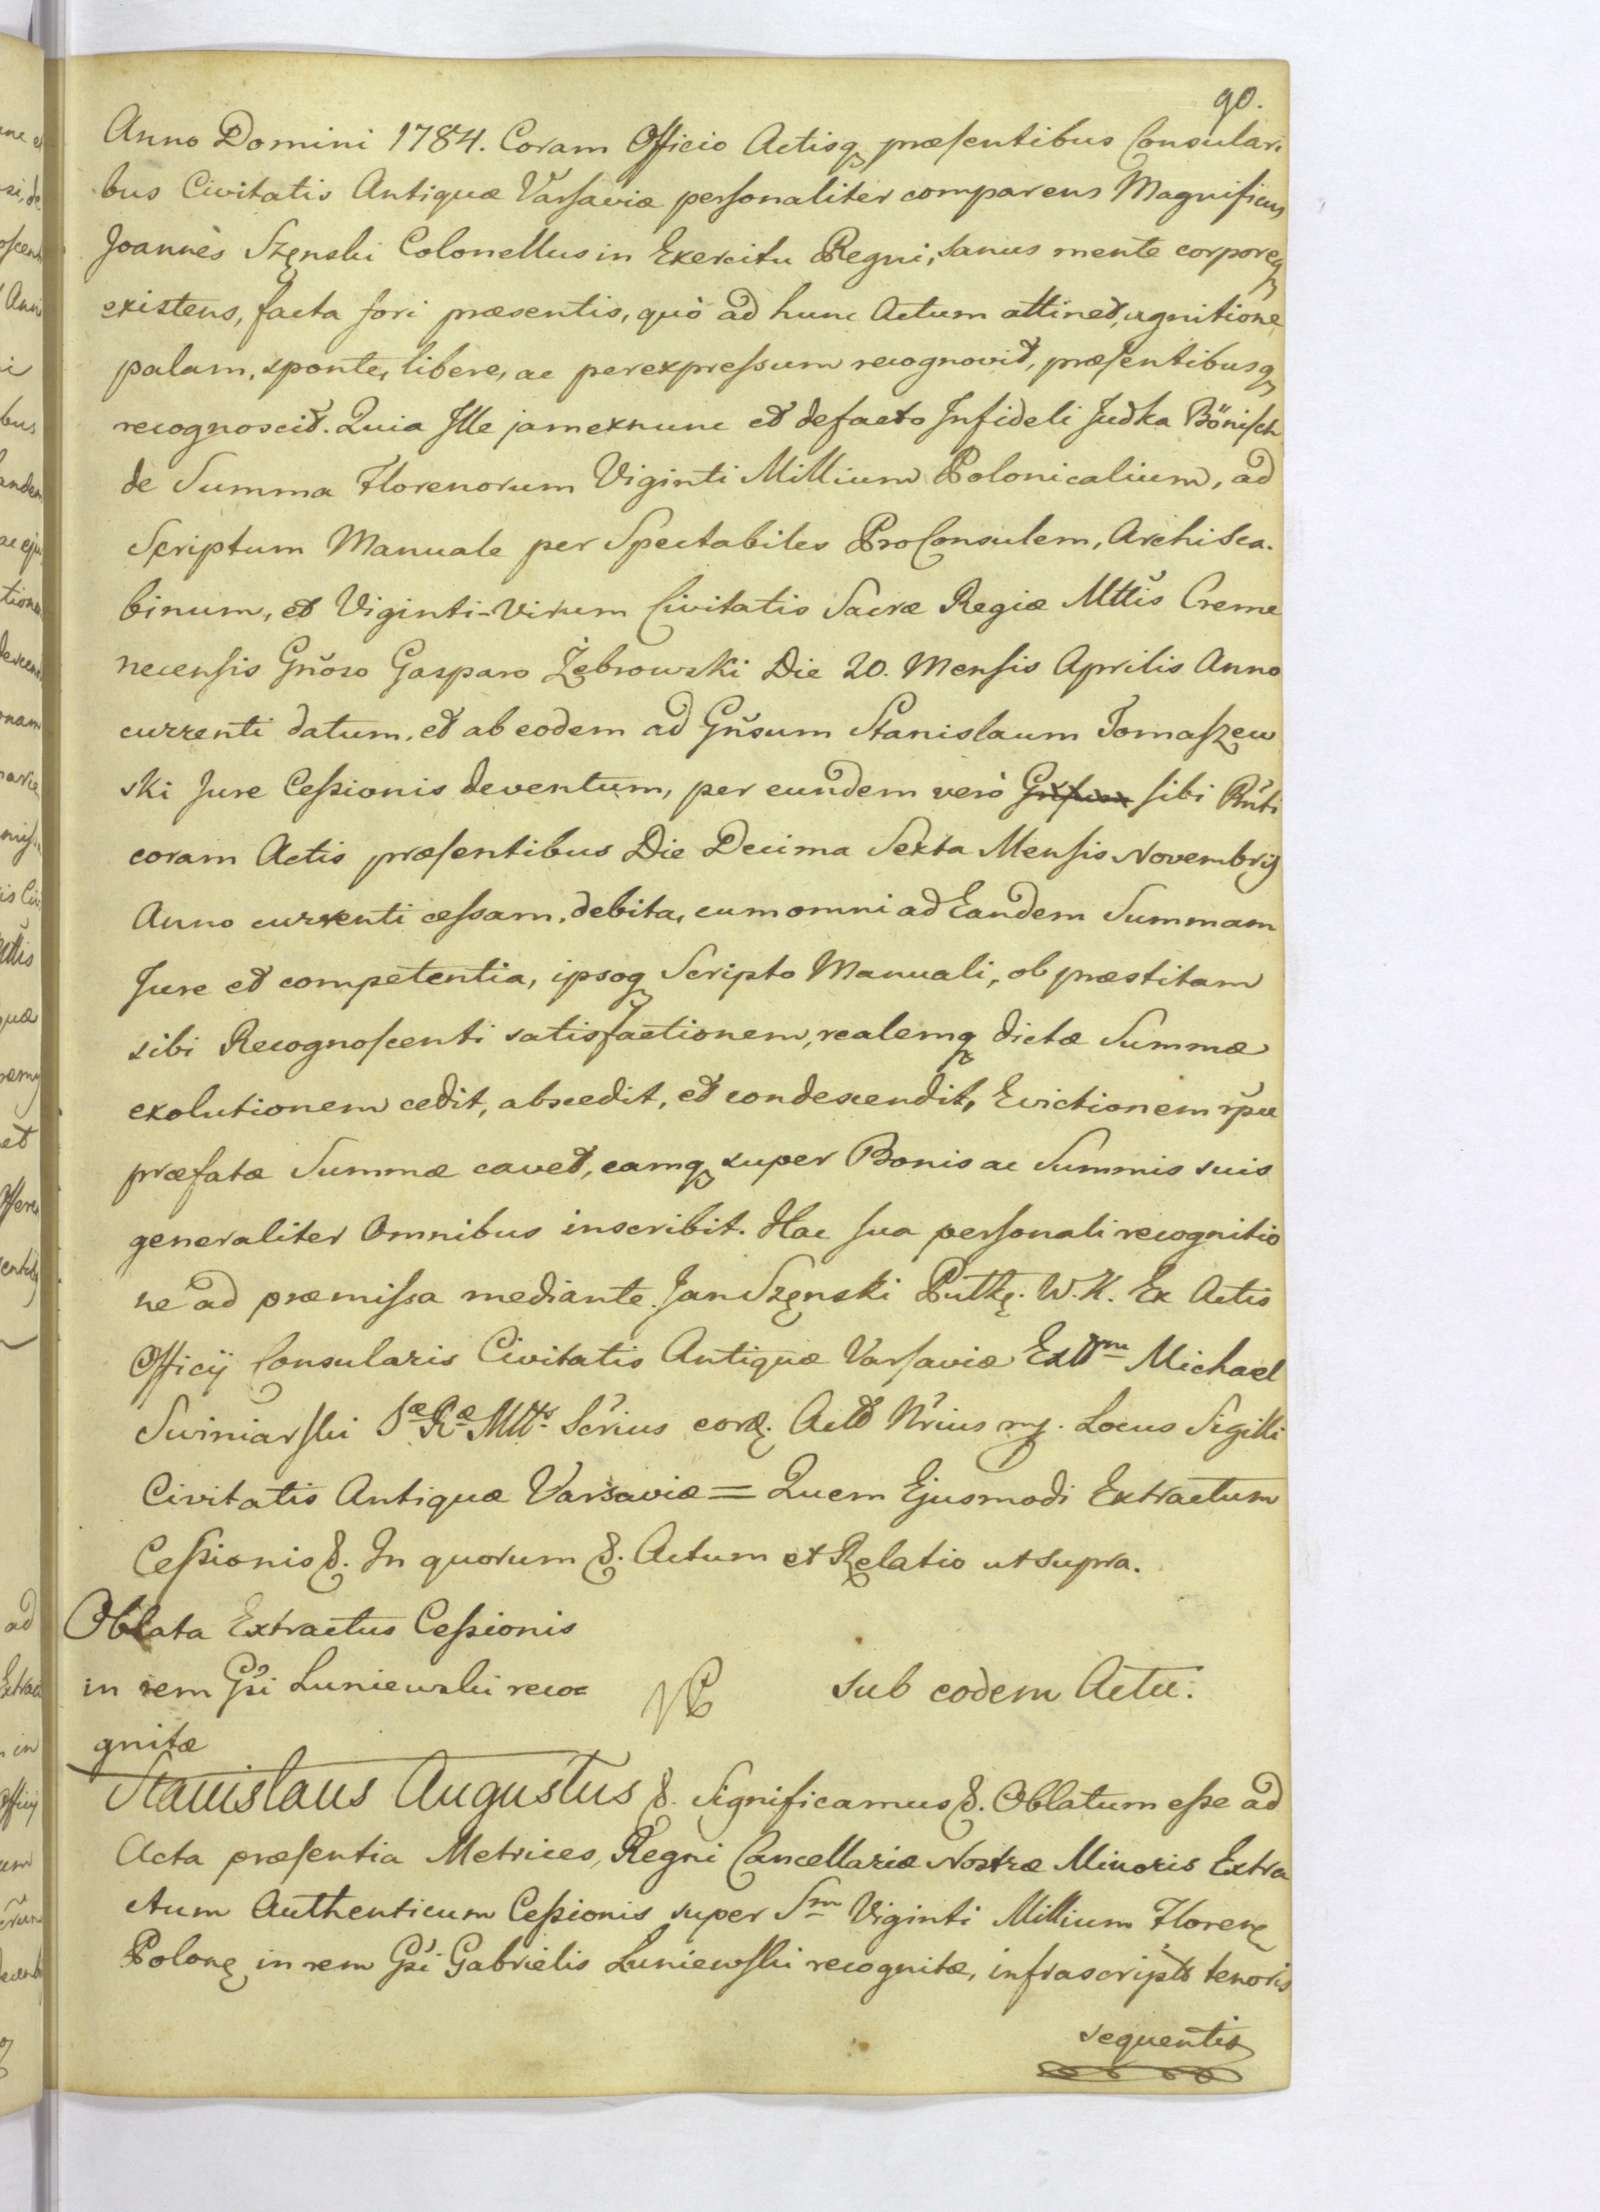 90.
Anno Domini 1784. Coram Officio Actisq́ præsentibus Consulari
bus Civitatis Antiquæ Varsaviæ personaliter comparens Magnificus
Joannes Szęnski Colonellus in Exercitu Regni, sanus mente corporeq
existens, facta fori præsentis, quò ad hunc Actum attinet, agnitione
palam, sponte, libere, ac per expressum recognovit, præsentibusq
recognoscit. Quia Ille jam ex nunc et de facto Infideli Judka Bönisch
de Summa Florenorum Viginti Millium Polonicalium, ad
Scriptum Manuale per Spectabiles ProConsulem, ArchiSca-
binum, et Viginti-Virum Civitatis Sacræ Regiæ Mttis Creme
necensis Gnoso Gasparo Żębrowski Die 20. Mensis Aprilis Anno
currenti datum, et ab eodem ad Gnsum Stanislaum Tomaszew
ski Jure Cessionis deventum, per eundem verò sibi Rnti
coram Actis præsentibus Die Decima Sexta Mensis Novembris
Anno currenti cessam, debita, cum omni ad Eandem Summam
Jure et competentia, ipsoq Scripto Manuali, ob præstitam
sibi Recognoscenti satisfactionem, realemq dictæ Summæ
exolutionem cedit, abscedit, et condescendit, Evictionem rpu
præfatæ Summæ cavet, eamq super Bonis ac Summis suis
generaliter Omnibus inscribit. Hac sua personali recognitio
ne ad præmissa mediante. Jan Szęnski Putkę. W.K. Ex Actis
Officij Consularis Civitatis Antiquæ Varsaviæ Extt͟m Michael
Swiniarski Sæ Ræ Mtts Scrius eorq. Actt Nrius mp. Locus Sigilli
Civitatis Antiquæ Varsaviæ = Quem Ejusmodi Extractum
Cessionis &. In quorum &. Actum et Relatio ut supra.
Oblata Extractus Cessionis
in rem Gsi Luniewski reco=
gnitæ
sub eodem Actu.
Stanislaus Augustus &. Significamus &. Oblatum esse ad
Acta præsentia Metrices, Regni Cancellariæ Nostræ Minoris Extra
ctum Authenticum Cessionis super Sm Viginti Millium Floren
Polon in rem Gsi Gabrielis Luniewski recognitæ, infrascripti tenoris
sequentis